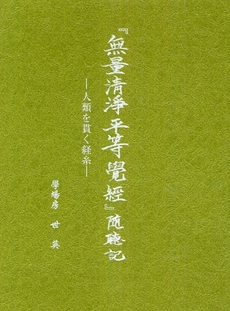 『無量清淨平等覺經』随聴記
―人類を貫く経糸―
學場房 世英